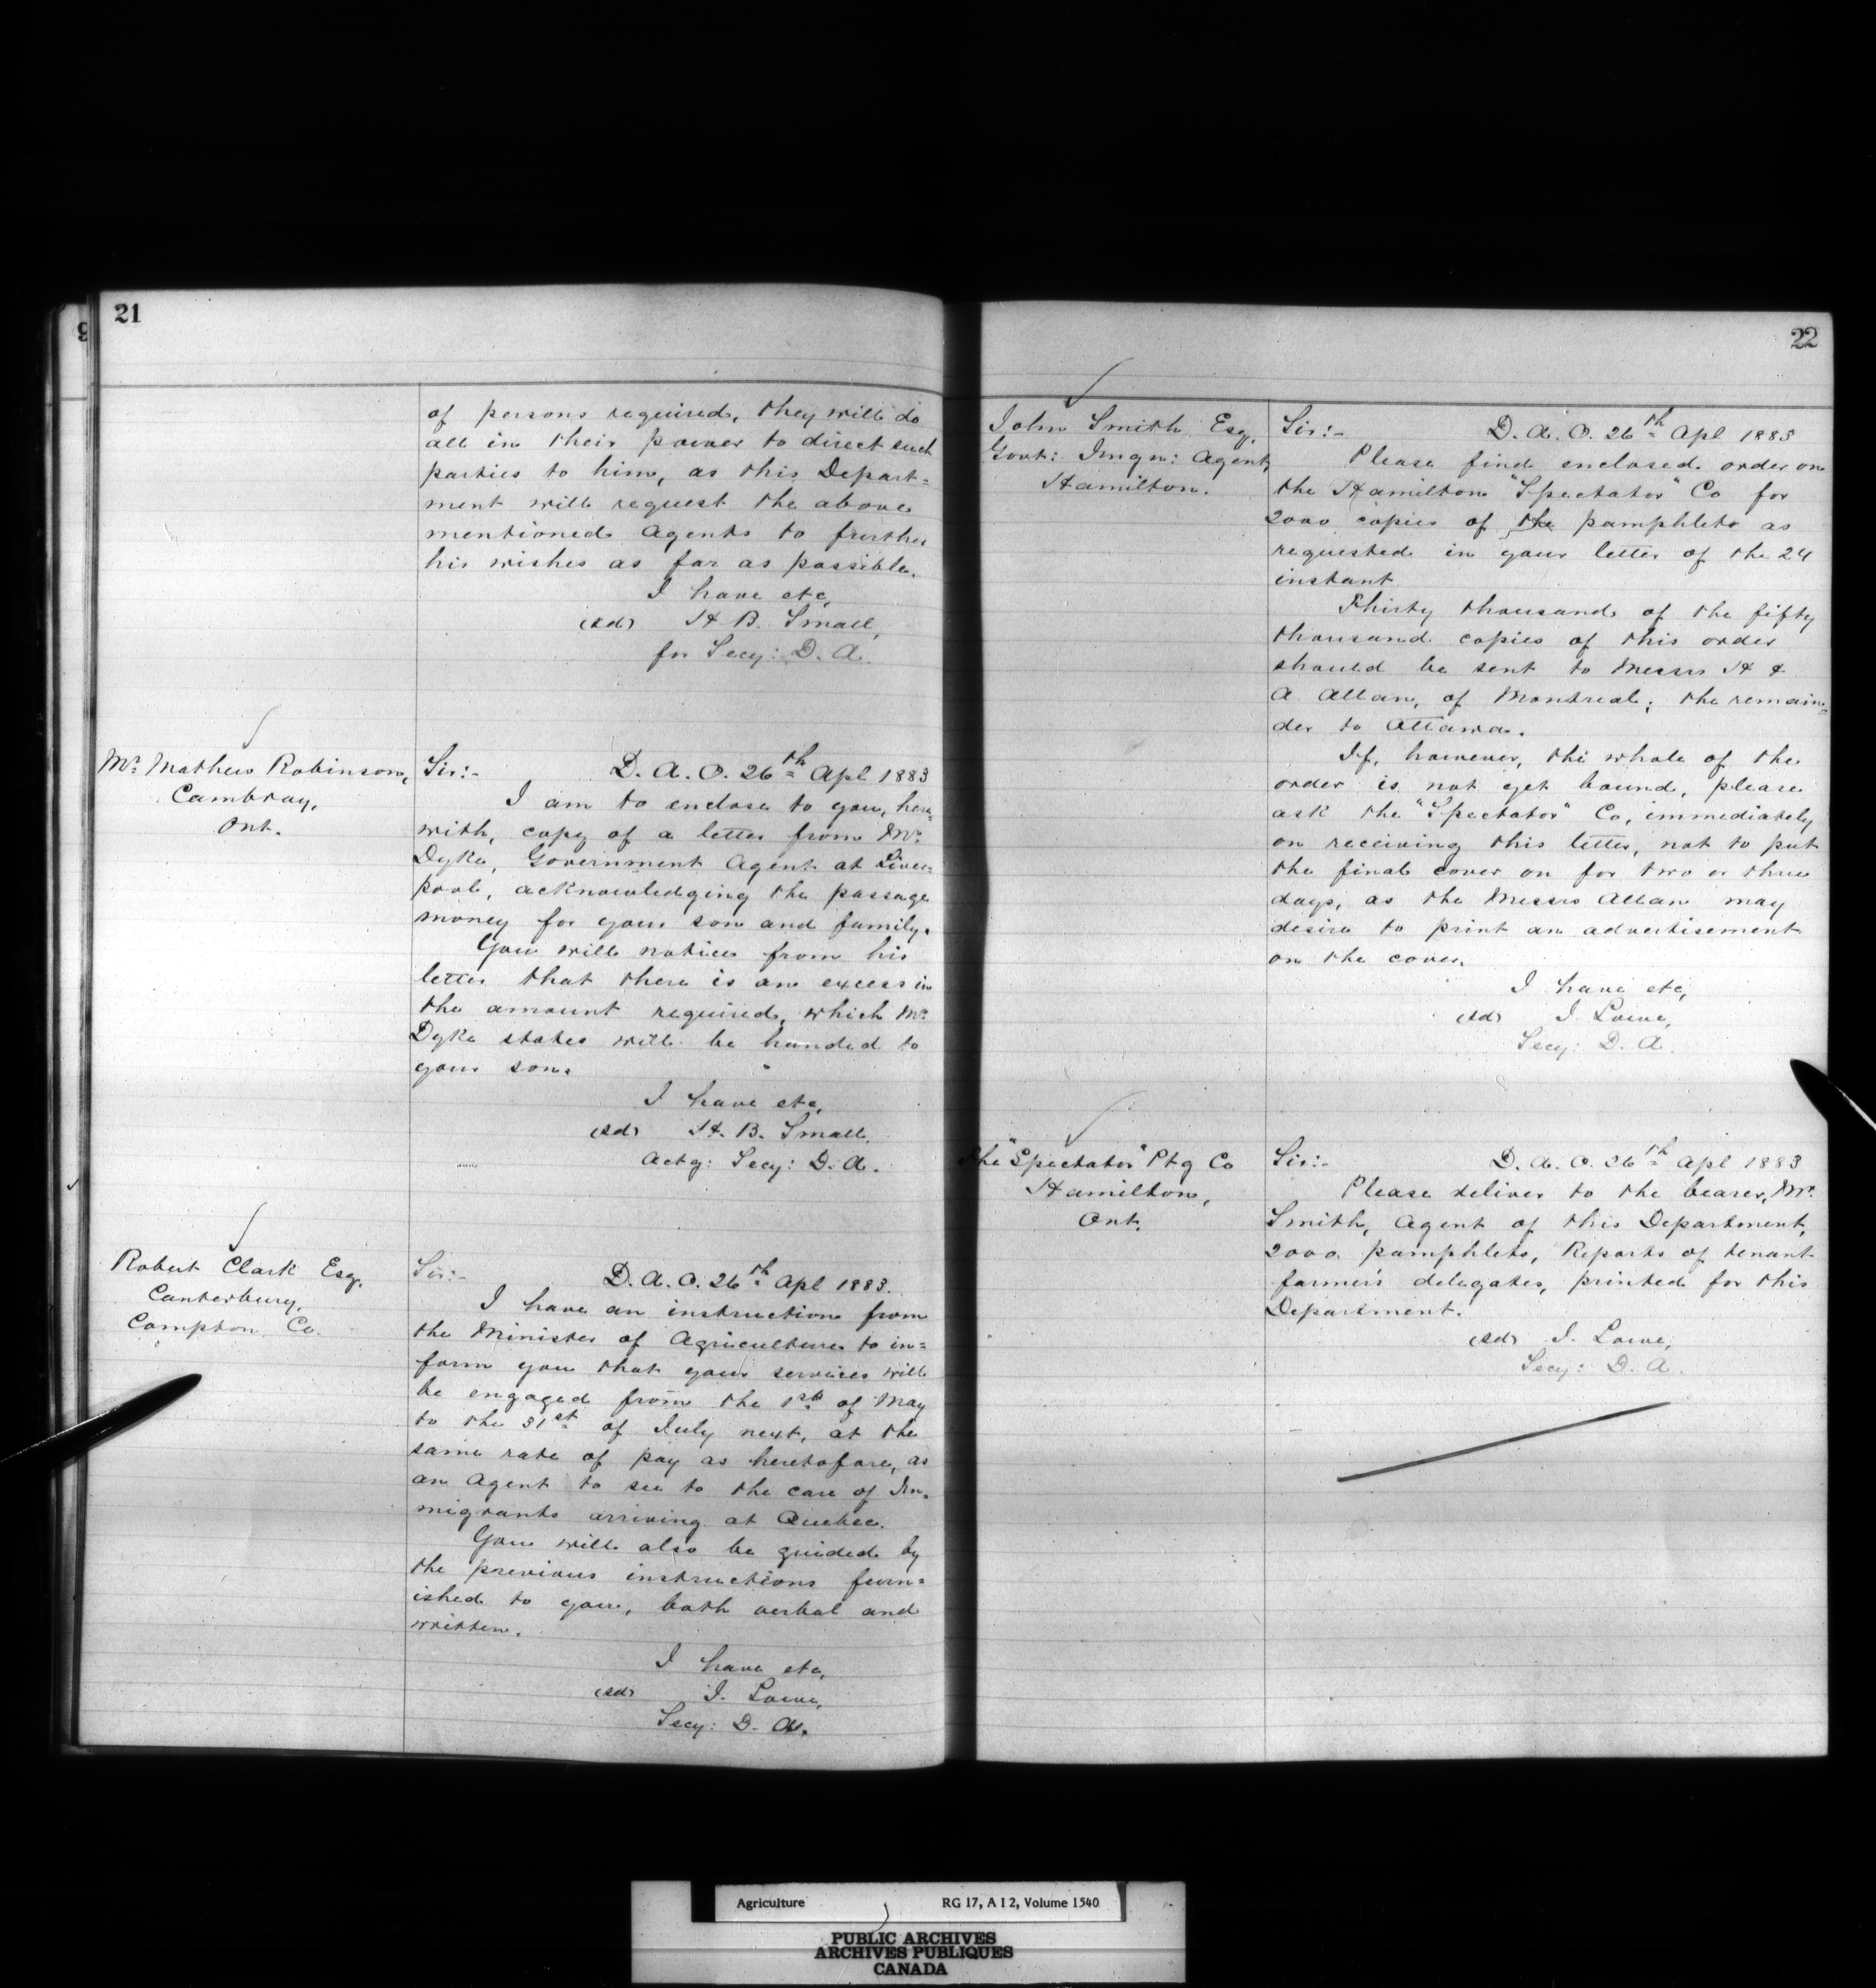 21
of persons required, they will do
all in their power to direct such
parties to him, as this Depart=
ment will request the above
mentioned Agents to further
his wishes as far as possible.
I have etc,
(sd) H B. Small,
for Secy: D. A.
Mr. Mathew Robinson,
Cambray,
Ont.
Sir:- D. A. O. 26th Apl 1883
I am to enclose to you, here=
with, copy of a letter from Mr.
Dyke, Government Agent at Liver=
pool, acknowledging the passage
money for your son and family.
You will notice from his
letter that there is an excess in
the amount required, which Mr.
Dyke states will be handed to
your son.
I have etc,
(sd) H. B. Small,
Actg: Secy: D. A.
Robert Clark Esq.
Canterbury,
Compton Co.
Sir:- D. A. O. 26th Apl 1883.
I have an instruction from
the Minister of Agriculture to in=
form you that your services will
be engaged from the 1st of May
to the 31st of July next, at the
same rate of pay as heretofore, as
an Agent to see to the care of Im=
migrants arriving at Quebec.
You will also be guided by
the previous instructions furn=
ished to you, both verbal and
written.
I have etc,
(sd) J. Lowe,
Secy: D. A.
22
John Smith Esq,
Govt: Imgn: Agent,
Hamilton.
Sir:- D. A. O. 26th Apl 1883
Please find enclosed order on
the Hamilton "Spectator" Co for
2000 copies of the pamphlets as
requested in your letter of the 24
instant
Thirty thousand of the fifty
thousand copies of this order
should be sent to Messrs H &
A. Allan, of Montreal; the remain=
der to Ottawa.
If, however, the whole of the
order is not yet bound, please
ask the "Spectator" Co, immediately
on receiving this letter, not to put
the final cover on for two or three
days, as the Messrs Allan may
desire to print an advertisement
on the cover.
I have etc,
(sd) J. Lowe,
Secy: D. A.
The "Spectator" Ptg Co
Hamilton,
Ont.
Sir:- D. A. O. 26th Apl 1883
Please deliver to the bearer, Mr.
Smith, Agent of this Department,
2000 pamphlets, Reports of tenant
farmer's delegates, printed for this
Department.
(sd) J. Lowe,
Secy: D. A.
Agriculture RG 17, A I 2, Volume 1540
PUBLIC ARCHIVES
ARCHIVES PUBLIQUES
CANADA